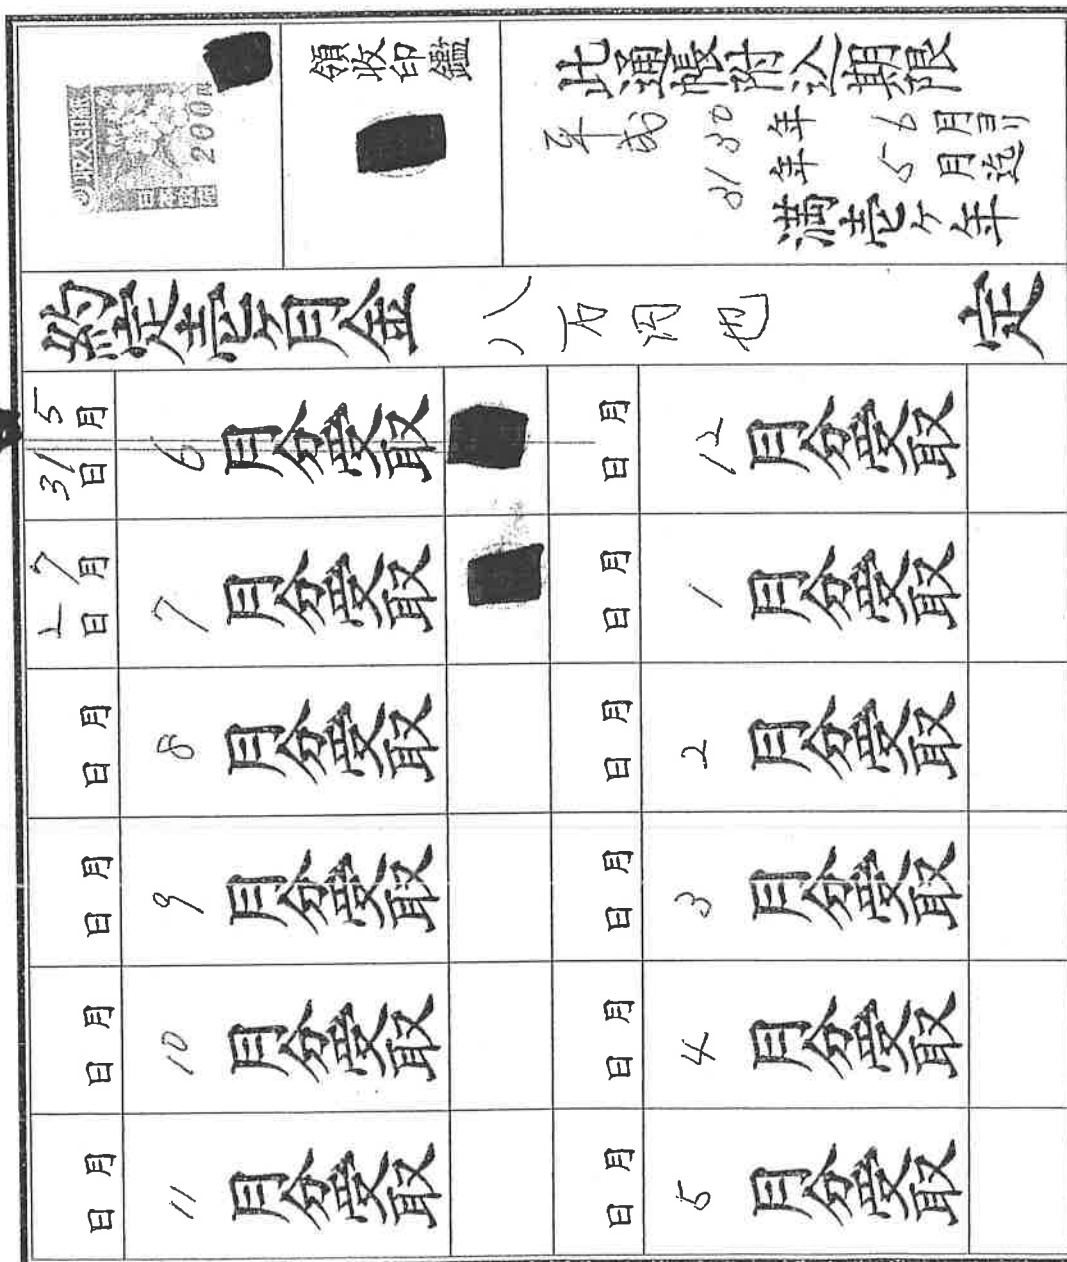 此通帳附込期限
平成 30年 6月ヨリ
31年 5月迄
満壱ヶ年
領収印鑑
収入印紙
200円
日本政府
約定壱ヶ月金 八万円也 定
5月31日 6月分受取
7月2日 7月分受取
月日 8月分受取
月日 9月分受取
月日 10月分受取
月日 11月分受取
月日 12月分受取
月日 1月分受取
月日 2月分受取
月日 3月分受取
月日 4月分受取
月日 5月分受取